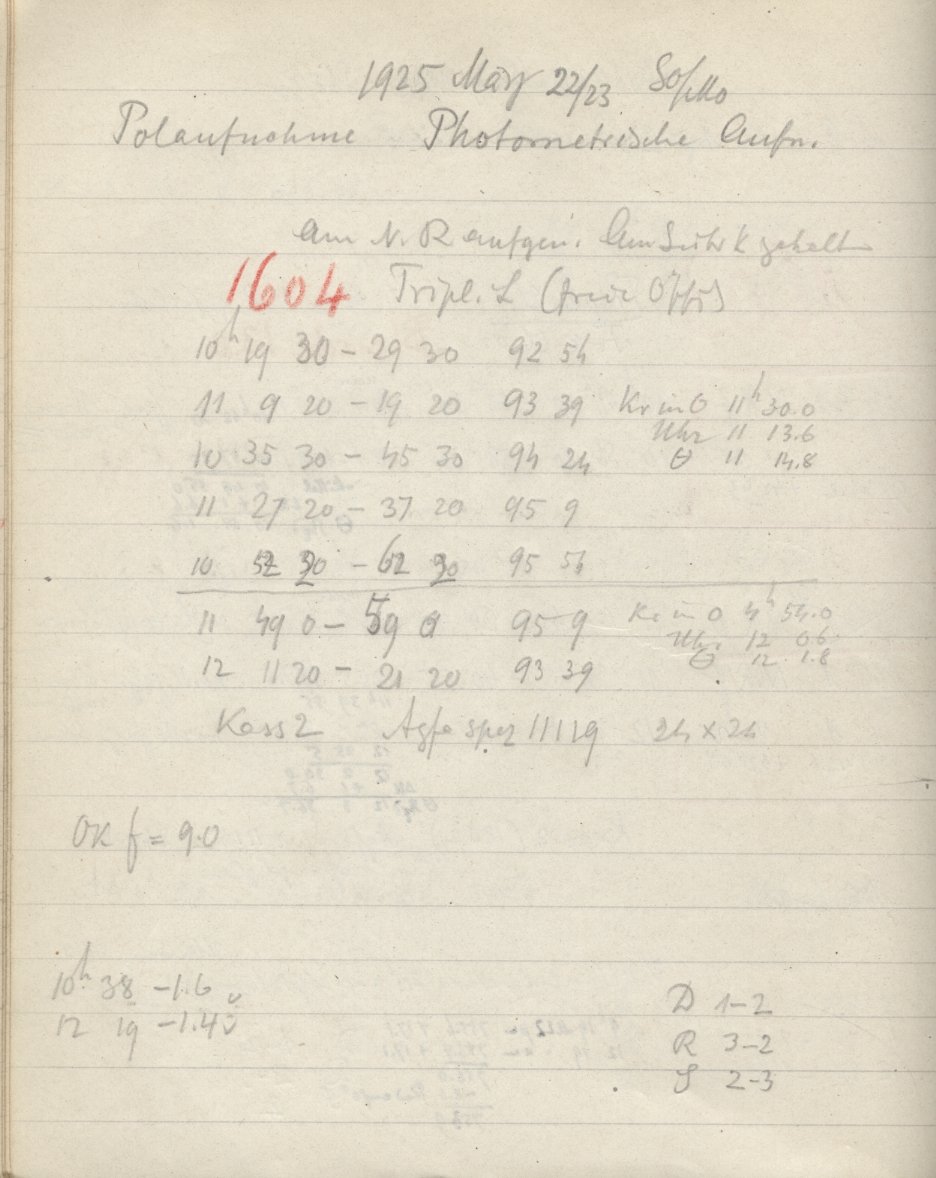 1925 März 22/23 So/Mo
Polaufnahme Photometrische Aufn.
Am N. R aufgen. Am
1604 Tripl. L (freie Öffg)
10h 19 30 – 29 30 92 54
11 9 20 – 19 20 93 39 Kr in O 11h 30.0
Uhr 11 13.6
10 35 30 – 45 30 94 24 Θ 11 14.8
11 27 20 – 37 20 95 9
10 52 30 – 62 30 95 54
11 49 0 – 59 0 95 9 Kr in O 4h 54.0
Uhr 12 0.6
Θ 12 1.8
12 11 20 – 21 20 93 39
Kass 2 Agfa spez 11119 24 x 24
OK f = 9.0
10h 38 –1.6
12 19 –1.40
D 1–2
R 3–2
S 2–3